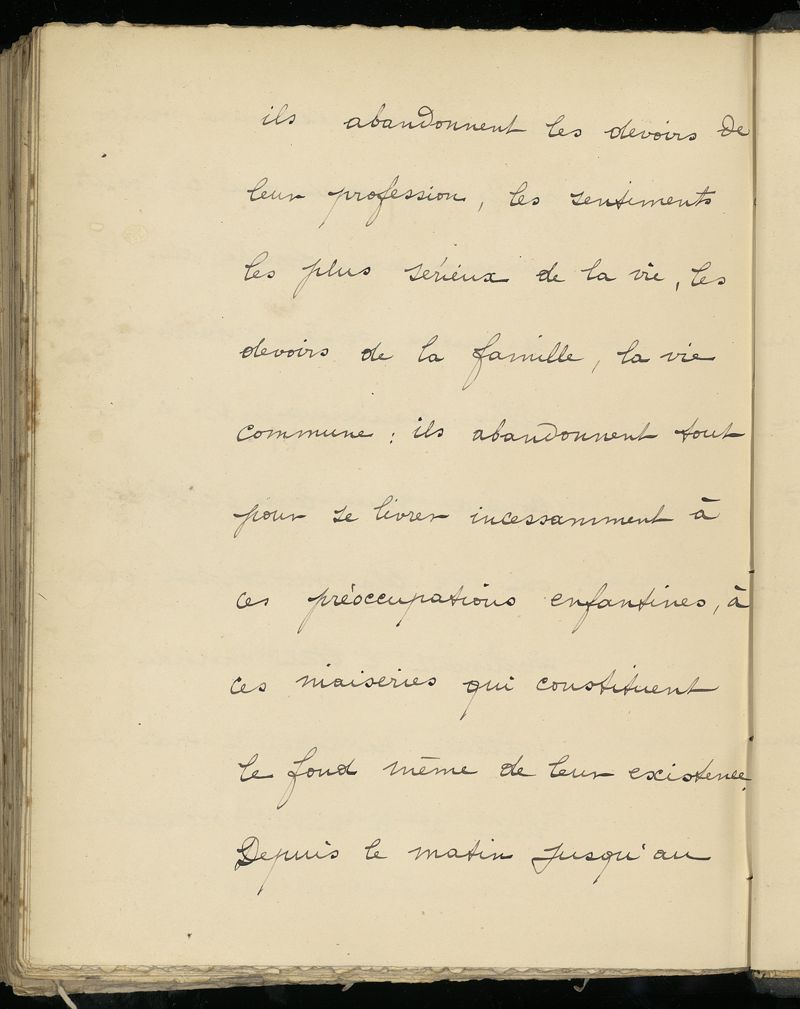 ils abandonnent les devoirs de
leur profession, les sentiments
les plus sérieux de la vie, les
devoirs de la famille, la vie
commune : ils abandonnent tout
pour se livrer incessamment à
ces préoccupations enfantines, à
ces niaiseries qui constituent
le fond même de leur existence.
Depuis le matin jusqu'au